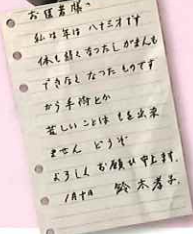 お医者様へ
私は年は八十三才です
体も弱くなつたしがまんも
できなくなつたものです
から手術とか
苦しいことはもう出来
ません どうぞ
よろしくお願い申します
1月十日 鈴木孝子